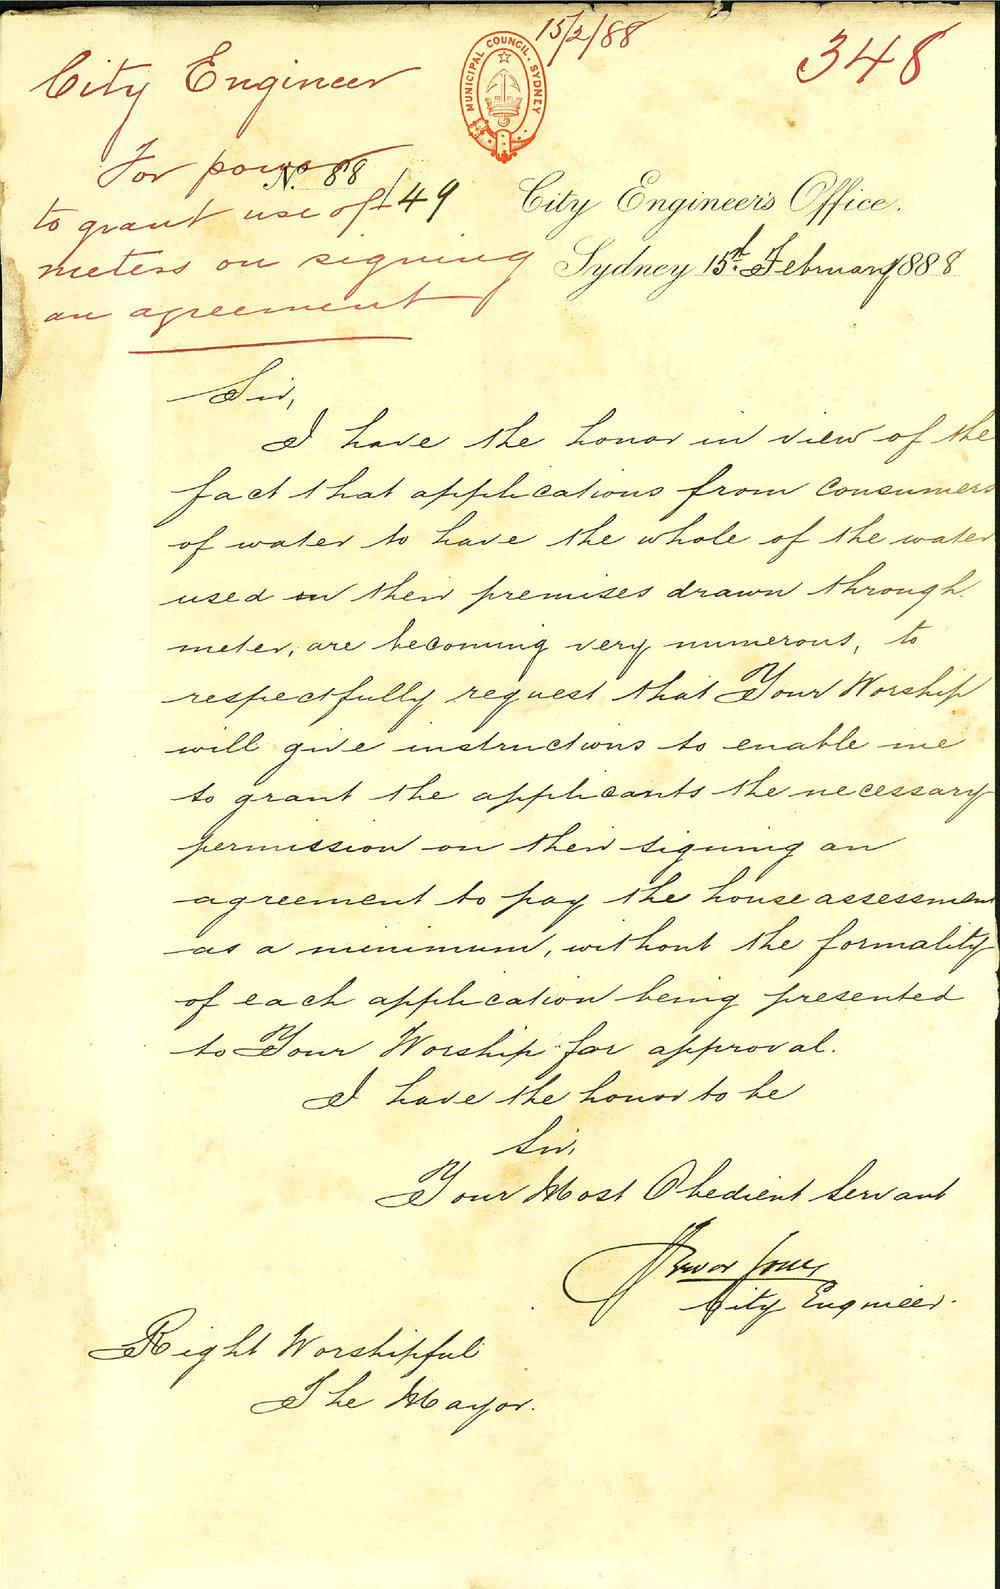 15/2/88
348
City Engineer
MUNICIPAL COUNCIL. SYDNEY
For power
No. 88/149
to grant use of
meters on signing
an agreement
City Engineer's Office.
Sydney 15th February 1888
Sir,
I have the honor in view of the
fact that applications from consumers
of water to have the whole of the water
used on their premises drawn through
meter, are becoming very numerous, to
respectfully request that Your Worship
will give instructions to enable me
to grant the applicants the necessary
permission on their signing an
agreement to pay the house assessment
as a minimum, without the formality
of each application being presented
to Your Worship for approval.
I have the honor to be
Sir,
Your Most Obedient Servant
Trevor Jones
City Engineer.
Right Worshipful
The Mayor.